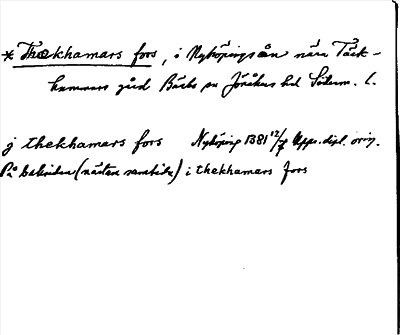 * Thækhamars fors, i Nyköpingsån nära Täck-
hammars gård Bärbo sn Jönåkers hd Söderm. l.
j thekhamars fors Nyköping 1381 12/7 Upps. dipl. orig.
På baksidan (nästan samtida) i thekhamars fors